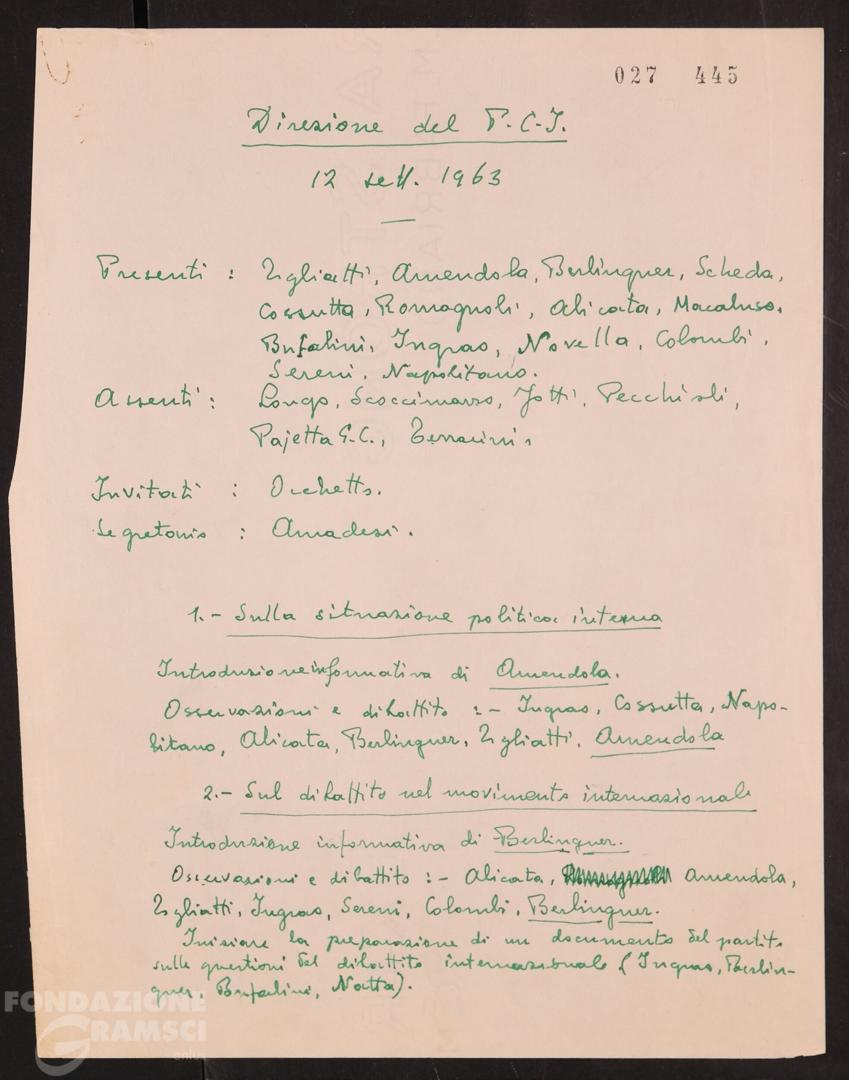 027 445
Direzione del P.C.I.
12 sett. 1963
Presenti : Togliatti, Amendola, Berlinguer, Scheda,
Cossutta, Romagnoli, Alicata, Macaluso,
Bufalini, Ingrao, Novella, Colombi,
Sereni, Napolitano.
Assenti : Longo, Scoccimarro, Jotti, Pecchioli,
Pajetta G.C., Terracini.
Invitati : Occhetto.
Segretario : Amadesi.
1.- Sulla situazione politica interna
Introduzione informativa di Amendola.
Osservazioni e dibattito :- Ingrao, Cossutta, Napo-
litano, Alicata, Berlinguer, Togliatti, Amendola
2.- Sul dibattito nel movimento internazionale
Introduzione informativa di Berlinguer.
Osservazioni e dibattito :- Alicata, Amendola,
Togliatti, Ingrao, Sereni, Colombi, Berlinguer.
Iniziare la preparazione di un documento del partito
sulle questioni del dibattito internazionale (Ingrao, Berlin-
guer, Bufalini, Natta).
FONDAZIONE
GRAMSCI
onlus